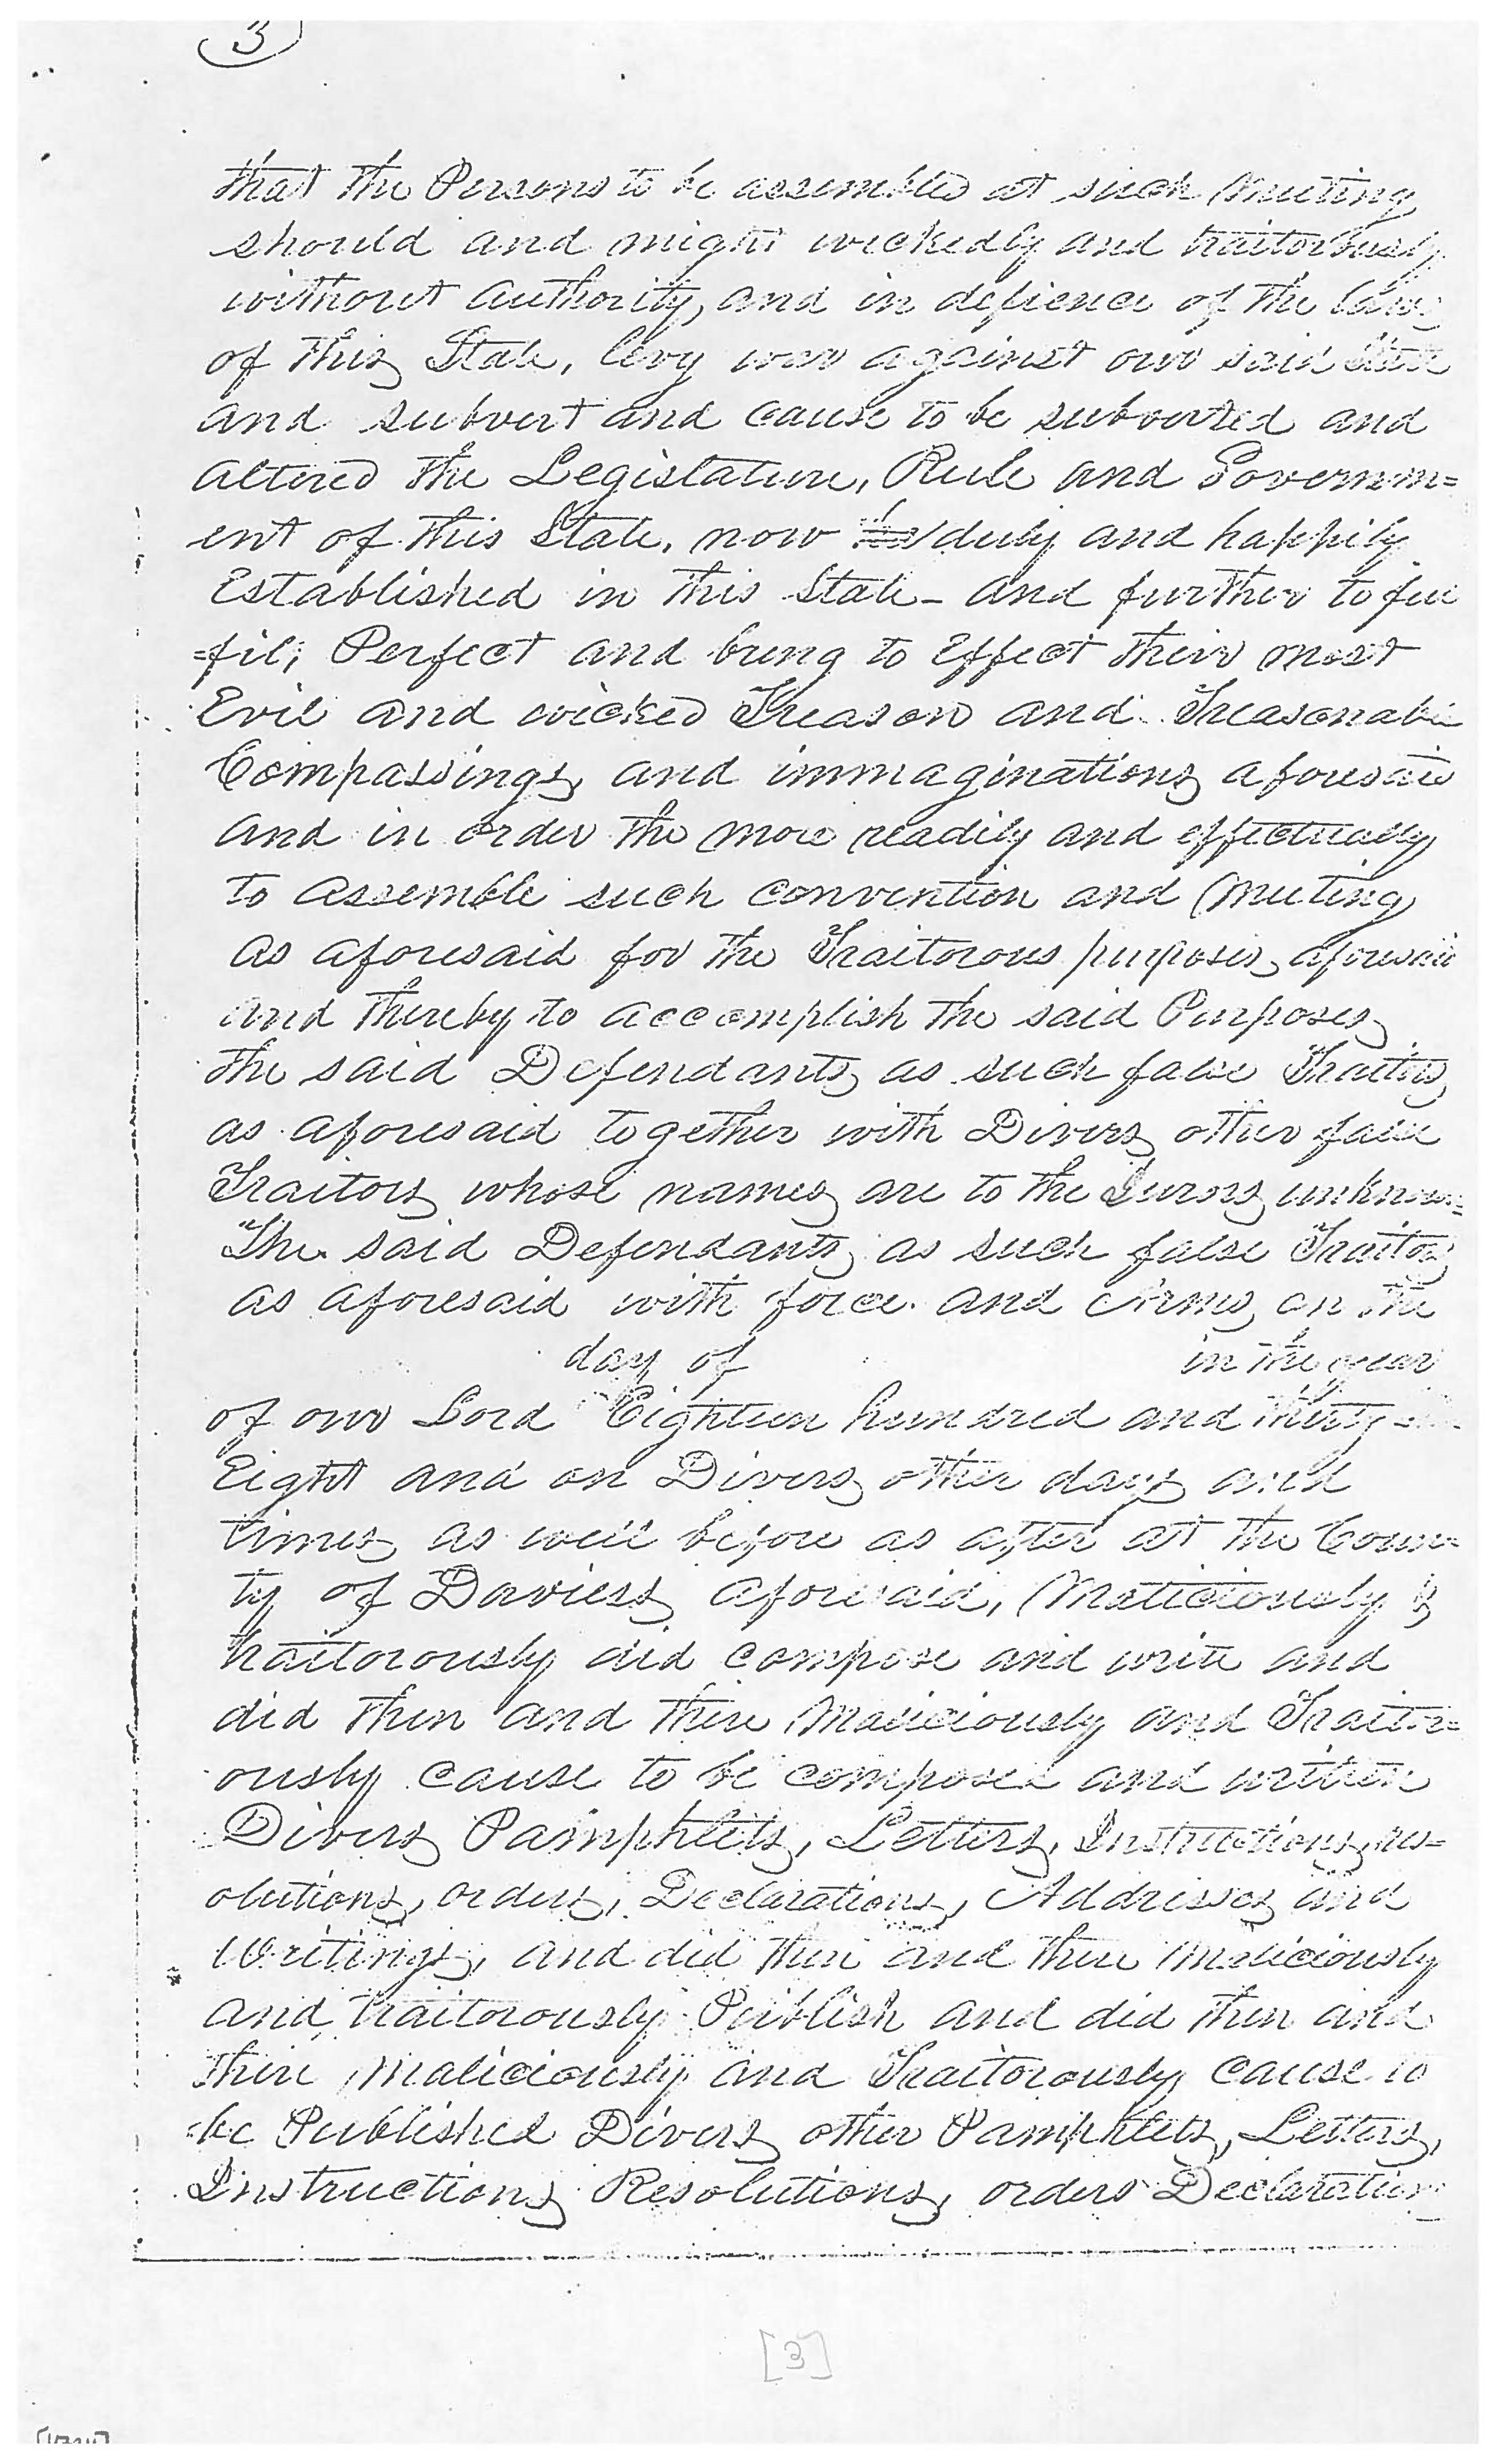 3
that the Persons to be assembled at such Meeting
should and might wickedly and traitorously
without authority, and in defience of the laws
of this State, levy war against our said State
and subvert and cause to be subverted and
altered the Legislature, Rule and Governm=
ent of this State, now duly and happily
Established in this State - and further to ful
=fil; Perfect and bring to Effect their most
Evil and wicked Treason and Treasonable
Compassings, and immaginations aforesaid
and in order the more readily and effectually
to assemble such convention and Meeting
as aforesaid for the Traitorous purposes aforesaid
and thereby to accomplish the said Purposes
the said Defendants as such false Traitors
as aforesaid together with Divers other false
Traitors whose names are to the Jurors unknown
The said Defendants as such false Traitors
as aforesaid with force and Arms, on the
day of in the year
of our Lord Eighteen hundred and thirty
Eight and on Divers other days and
times as well before as after at the Coun=
ty of Daviess aforesaid, Maliciously &
traitorously did compose and write and
did then and there Maliciously and Traitor=
ously cause to be composed and written
Divers Pamphlets, Letters, Instructions, res=
olutions, orders, Declarations, Addresses and
Writings, and did then and there maliciously
and traitorously Publish and did then and
there Maliciously and Traitorously cause to
be Published Divers other Pamphlets, Letters,
Instructions Resolutions, orders Declarations
[3]